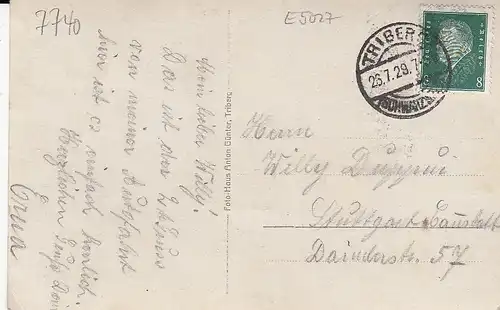 7740
E5027
TRIBERG
26.7.29.7
(SCHWARZW.
8
8
Mein lieber Willy!
Das ist der 2. Gruss
von meiner Autofahrt
hier ist es einfach herrlich.
Herzlichen Gruß Deine
Erna
Foto-Haus Anton Günter, Triberg
Herrn
Willy
Stuttgart-Cannstatt
57